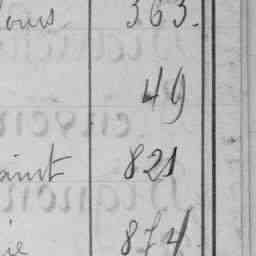 ours 363.
49
aint 821
ie 874.